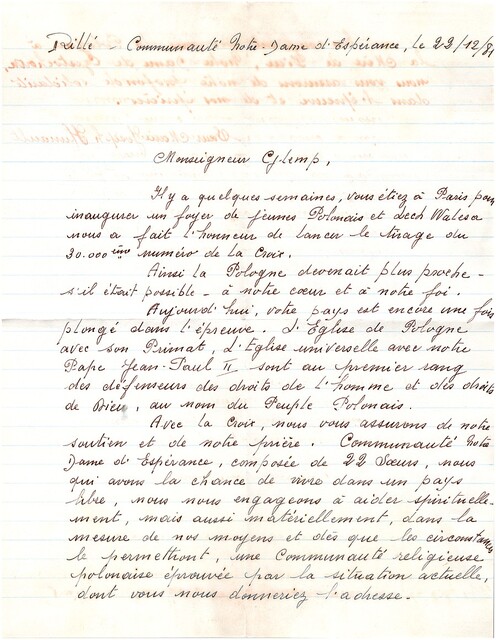 Rillé - Communauté Notre-Dame d'Espérance, le 23/12/81
Monseigneur Glemp,
Il y a quelques semaines, vous étiez à Paris pour
inaugurer un foyer de jeunes Polonais et Lech Walesa
nous a fait l'honneur de lancer le tirage du
30.000 ème numéro de la Croix.
Ainsi la Pologne devenait plus proche -
s'il était possible - à notre cœur et à notre foi.
Aujourd'hui, votre pays est encore une fois
plongé dans l'épreuve. L'Eglise de Pologne
avec son Primat, L'Eglise universelle avec notre
Pape Jean-Paul II sont au premier rang
des défenseurs des droits de l'homme et des droits
de Dieu, au nom du Peuple Polonais.
Avec la Croix, nous vous assurons de notre
soutien et de notre prière. Communauté Notre
Dame d'Espérance, composée de 22 Sœurs, nous
qui avons la chance de vivre dans un pays
libre, nous nous engageons à aider spirituelle-
ment, mais aussi matériellement, dans la
mesure de nos moyens et dès que les circonstances
le permettront, une Communauté religieuse
polonaise éprouvée par la situation actuelle,
dont vous nous donneriez l'adresse.-